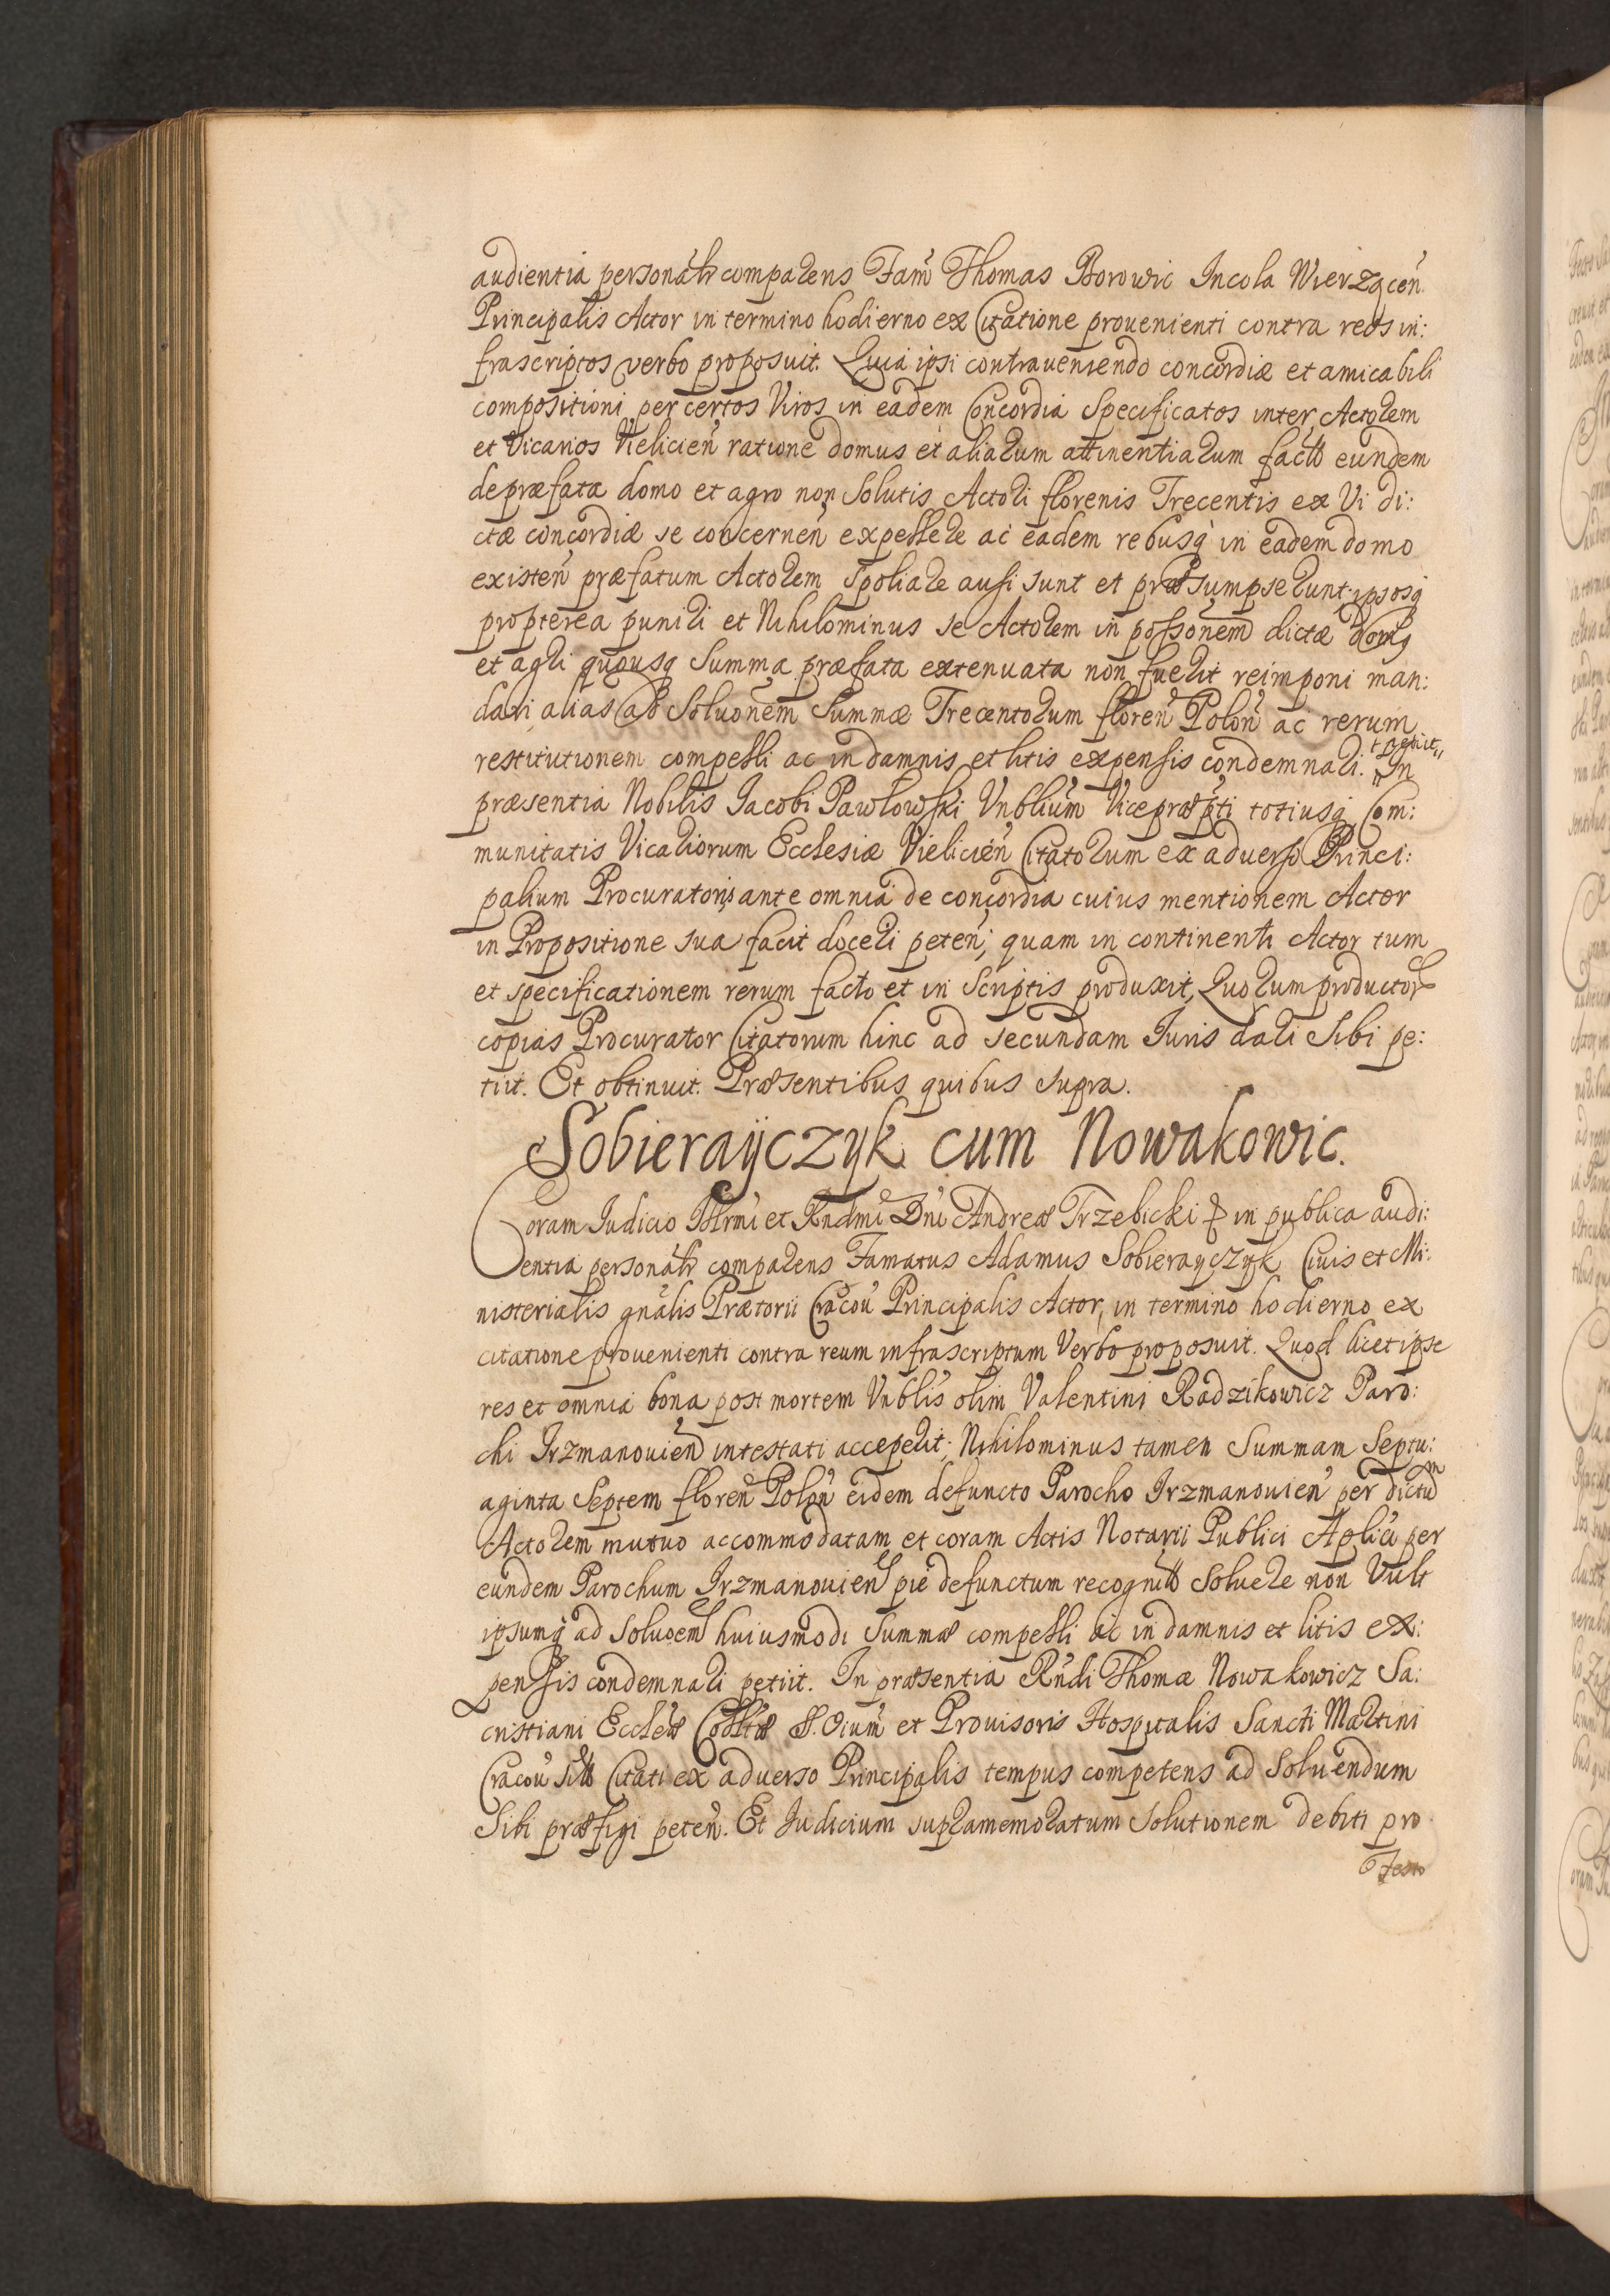 audientia personalr comparens Fam̃ Thomas Borowic Incola Wierzgceñ.
Principalis Actor in termino hodierno ex Citatione prouenienti contra reos in:
frascriptos verbo proposuit. Quia ipsi contraueniendo concordiæ et amicabili
compositioni per certos Viros in eadem Concordia Specificatos inter Actorem
et Vicarios Vielicieñ ratione domus et aliarum attinentiarum facto eundem
de præfata domo et agro non Solutis Actori florenis Trecentis ex Vi di:
ctæ concordiæ se concerneñ expellere ac eadem rebusq in eadem domo
existeñ præfatum Actorem Spoliare ausi sunt et præsumpserunt: ipsosq
propterea puniri et Nihilominus se Actorem in possonem dictæ domq
et agri quousq Summa præfata extenuata non fuerit reimponi man:
dari, alias ad Soluonem Summæ Trecentorum floreñ Poloñ ac rerum
restitutionem compelli ac in damnis et litis expensis condemnari. petiit In
præsentia Nobilis Jacobi Pawlowski Vnblium Vicepræpti totiusq Com:
munitatis Vicariorum Ecclesiæ Vielicieñ Citatorum ex aduerso Princi:
palium Procuratoris ante omnia de concordia cuius mentionem Actor
in Propositione sua facit doceri peteñ; quam in continenti Actor tum
et specificationem rerum facto et in Scriptis produxit, Quorum productor
copias Procurator Citatorum hinc ad secundam Juris dari Sibi pe:
tiit. Et obtinuit. Præsentibus quibus supra.
Sobierayczyk cum Nowakowic.
Coram Judicio Illrmi et Rndmi Dni Andreæ Trzebicki & in publica audi:
entia personalr comparens Famatus Adamus Sobierayczyk Ciuis et Mi:
nisterialis gnalis Prætorii Cracou Principalis Actor, in termino hodierno ex
citatione prouenienti contra reum infrascriptum Verbo proposuit. Quod licet ipse
res et omnia bona post mortem Vnblis olim Valentini Radzikowicz Paro:
chi Irzmanouieñ intestati acceperit; Nihilominus tamen Summam Septu:
aginta Septem floreñ Poloñ eidem defuncto Parocho Irzmanouieñ per dictum
Actorem mutuo accommodatam et coram Actis Notarii Publici Aplici per
eundem Parochum Irzmanouieñ pie defunctum recognito Soluere non Vult
ipsumq ad Soluoem huiusmodi Summæ compelli ac in damnis et litis ex:
pensis condemnari petiit. In præsentia Rndi Thomæ Nowakowicz Sa:
cristiani Eccleæ Colltæ S. Oium et Prouisoris Hospitalis Sancti Martini
Cracou Citati ex aduerso Principalis tempus competens ad Soluendum
Sibi præfigi peteñ. Et Judicium supramemoratum Solutionem debiti pro
festo